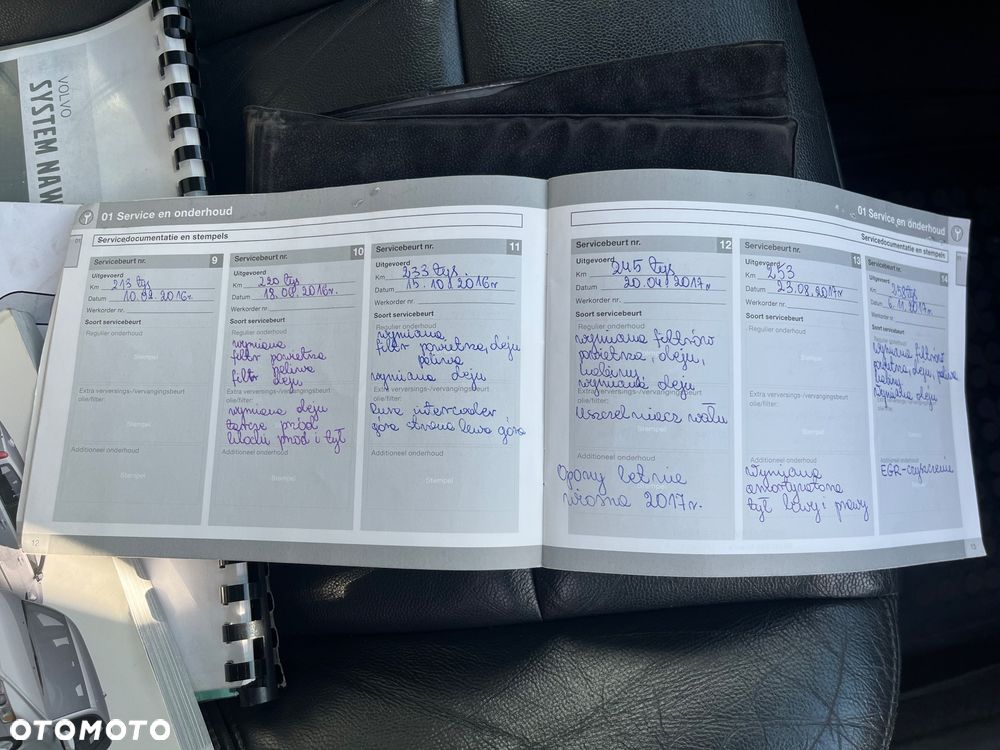 VOLVO
SYSTEM NAW
01 Service en onderhoud
Servicedocumentatie en stempels
Servicebeurt nr. 9
Uitgevoerd
Km 213 tys
Datum 10.02.2016r.
Werkorder nr.
Soort servicebeurt
Regulier onderhoud
Stempel
Extra verversings-/vervangingsbeurt
olie/filter:
Stempel
Additioneel onderhoud
Stempel
12
Servicebeurt nr. 10
Uitgevoerd
Km 220 tys
Datum 2016r.
Werkorder nr.
Soort servicebeurt
Regulier onderhoud
wymiana
filtr powietrza
filtr paliwa
filtr oleju
Extra verversings-/vervangingsbeurt
olie/filter:
wymiana oleju
tarcze przód
klocki przód i tył
Additioneel onderhoud
Stempel
Servicebeurt nr. 11
Uitgevoerd
Km 233 tys
Datum 15.10.2016r
Werkorder nr.
Soort servicebeurt
Regulier onderhoud
wymiana
filtr powietrza, oleju
paliwa
wymiana oleju
Extra verversings-/vervangingsbeurt
olie/filter:
Rura intercooler
góra strona lewa góra
Additioneel onderhoud
Stempel
01 Service en onderhoud
Servicedocumentatie en stempels
Servicebeurt nr. 12
Uitgevoerd
Km 245 tys
Datum 20.04.2017r
Werkorder nr.
Soort servicebeurt
Regulier onderhoud
wymiana filtrów
powietrza, oleju,
kabiny
wymiana oleju
Extra verversings-/vervangingsbeurt
olie/filter:
Uszczelniacz wału
Additioneel onderhoud
Opony letnie
wiosna 2017r.
Servicebeurt nr. 13
Uitgevoerd
Km 253
Datum 23.08.2017r
Werkorder nr.
Soort servicebeurt
Regulier onderhoud
Stempel
Extra verversings-/vervangingsbeurt
olie/filter:
Stempel
Additioneel onderhoud
Wymiana
amortyzatora
tył lewy i prawy
Servicebeurt nr. 14
Uitgevoerd
Km 258tys
Datum 6.11.2017r.
Werkorder nr.
Soort servicebeurt
Regulier onderhoud
Wymiana filtrów
powietrza, oleju, paliwa
kabiny
Wymiana oleju
Extra verversings-/vervangingsbeurt
olie/filter:
Stempel
Additioneel onderhoud
EGR-czyszczenie
Stempel
13
OTOMOTO